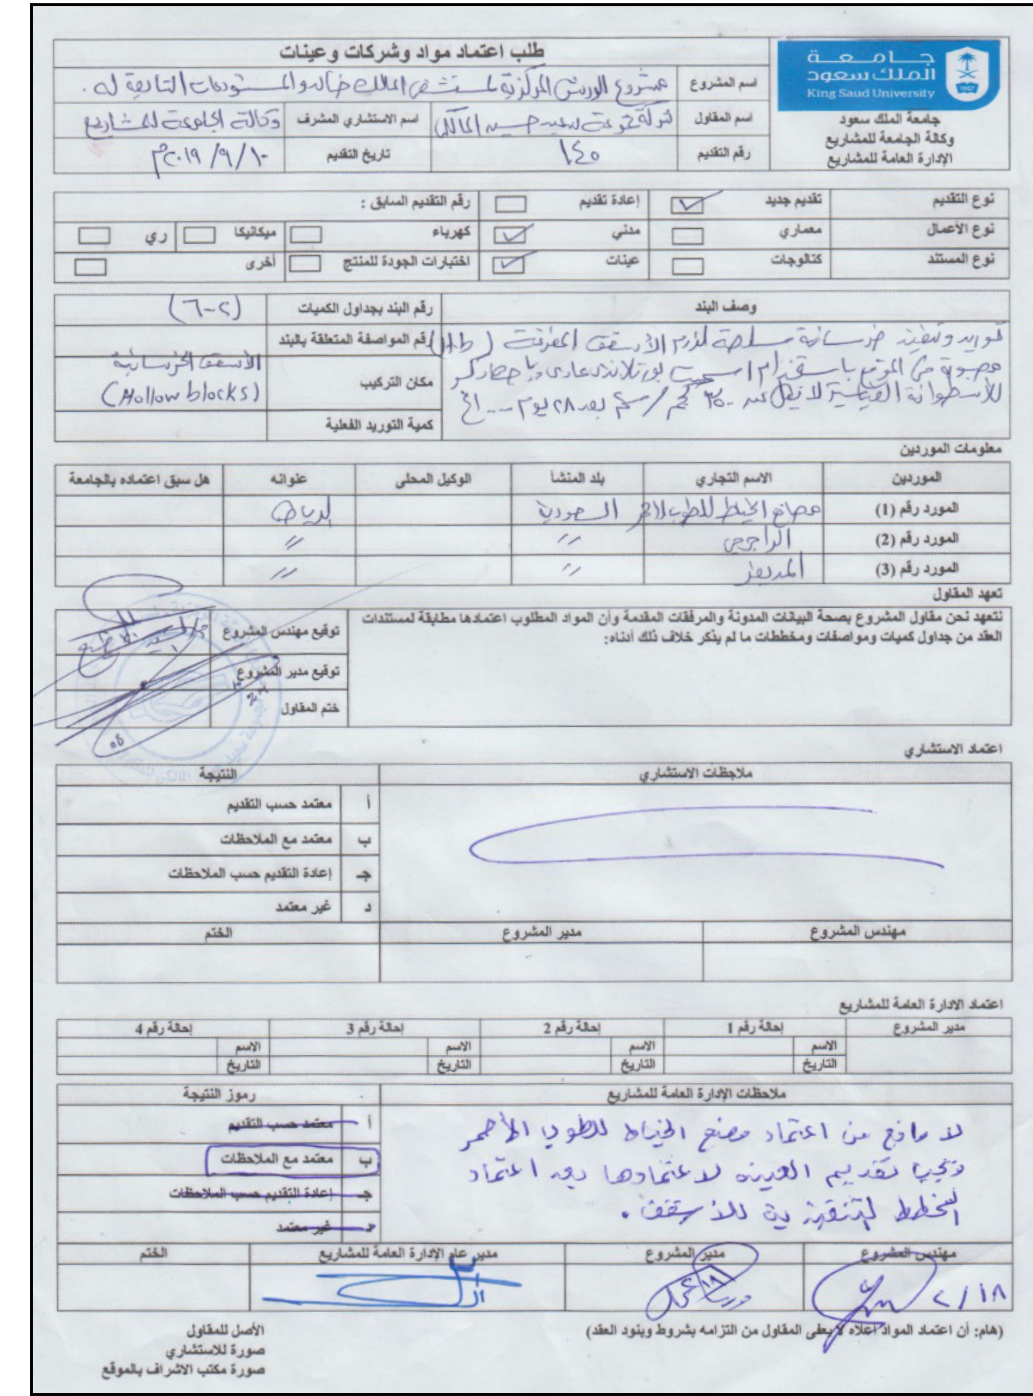 طلب اعتماد مواد وشركات وعينات
جامعة
الملك سعود
King Saud University
1957
جامعة الملك سعود
وكالة الجامعة للمشاريع
الإدارة العامة للمشاريع
اسم المشروع مشروع الورش المركزية لمستشفى الملك خالد والمستودعات التابعة له .
اسم المقاول شركة مجموعة سعيد حسين المالكي اسم الاستشاري المشرف وكالة الجامعة للمشاريع
رقم التقديم ١٤٥ تاريخ التقديم ٢٠١٩/٩/١٠م
نوع التقديم تقديم جديد إعادة تقديم رقم التقديم السابق :
نوع الأعمال معماري مدني كهرباء ميكانيكا ري
نوع المستند كتالوجات عينات اختبارات الجودة للمنتج أخرى
وصف البند رقم البند بجداول الكميات (٦-٢)
توريد وتنفيذ خرسانة مسلحة لزوم الأسقف المفرغة
رقم المواصفة المتعلقة بالبند
مصبوبة في الموقع باستخدام اسمنت بورتلاندي عادي وباجهاد كسر
مكان التركيب الأسقف الخرسانية
(Hollow blocks)
للأسطوانة القياسية لا يقل عن ٣٥٠ كجم / سم بعد ٢٨ يوم .... الخ
كمية التوريد الفعلية
معلومات الموردين
الموردين الاسم التجاري بلد المنشأ الوكيل المحلى عنوانه هل سبق اعتماده بالجامعة
المورد رقم (1) مصانع الخياط للطوب الأحمر السعودية الرياض
المورد رقم (2) الراجحي // //
المورد رقم (3) // //
تعهد المقاول
نتعهد نحن مقاول المشروع بصحة البيانات المدونة والمرفقات المقدمة وأن المواد المطلوب اعتمادها مطابقة لمستندات
العقد من جداول كميات ومواصفات ومخططات ما لم يذكر خلاف ذلك أدناه:
توقيع مهندس المشروع
توقيع مدير المشروع
ختم المقاول
اعتماد الاستشاري
ملاحظات الاستشاري النتيجة
أ معتمد حسب التقديم
ب معتمد مع الملاحظات
جـ إعادة التقديم حسب الملاحظات
د غير معتمد
مهندس المشروع مدير المشروع الختم
اعتماد الادارة العامة للمشاريع
مدير المشروع إحالة رقم 1 إحالة رقم 2 إحالة رقم 3 إحالة رقم 4
الاسم الاسم الاسم الاسم
التاريخ التاريخ التاريخ التاريخ
ملاحظات الإدارة العامة للمشاريع رموز النتيجة
لا مانع من اعتماد مصنع الخياط للطوب الأحمر
ويجب تقديم العينه لاعتمادها بعد اعتماد
المخطط التنفيذية للأسقف .
أ معتمد حسب التقديم
ب معتمد مع الملاحظات
جـ إعادة التقديم حسب الملاحظات
د غير معتمد
مهندس المشروع مدير المشروع مدير عام الإدارة العامة للمشاريع الختم
٢/١٨
(هام: أن اعتماد المواد أعلاه لا يعفى المقاول من التزامه بشروط وبنود العقد)
الأصل للمقاول
صورة للاستشاري
صورة مكتب الاشراف بالموقع